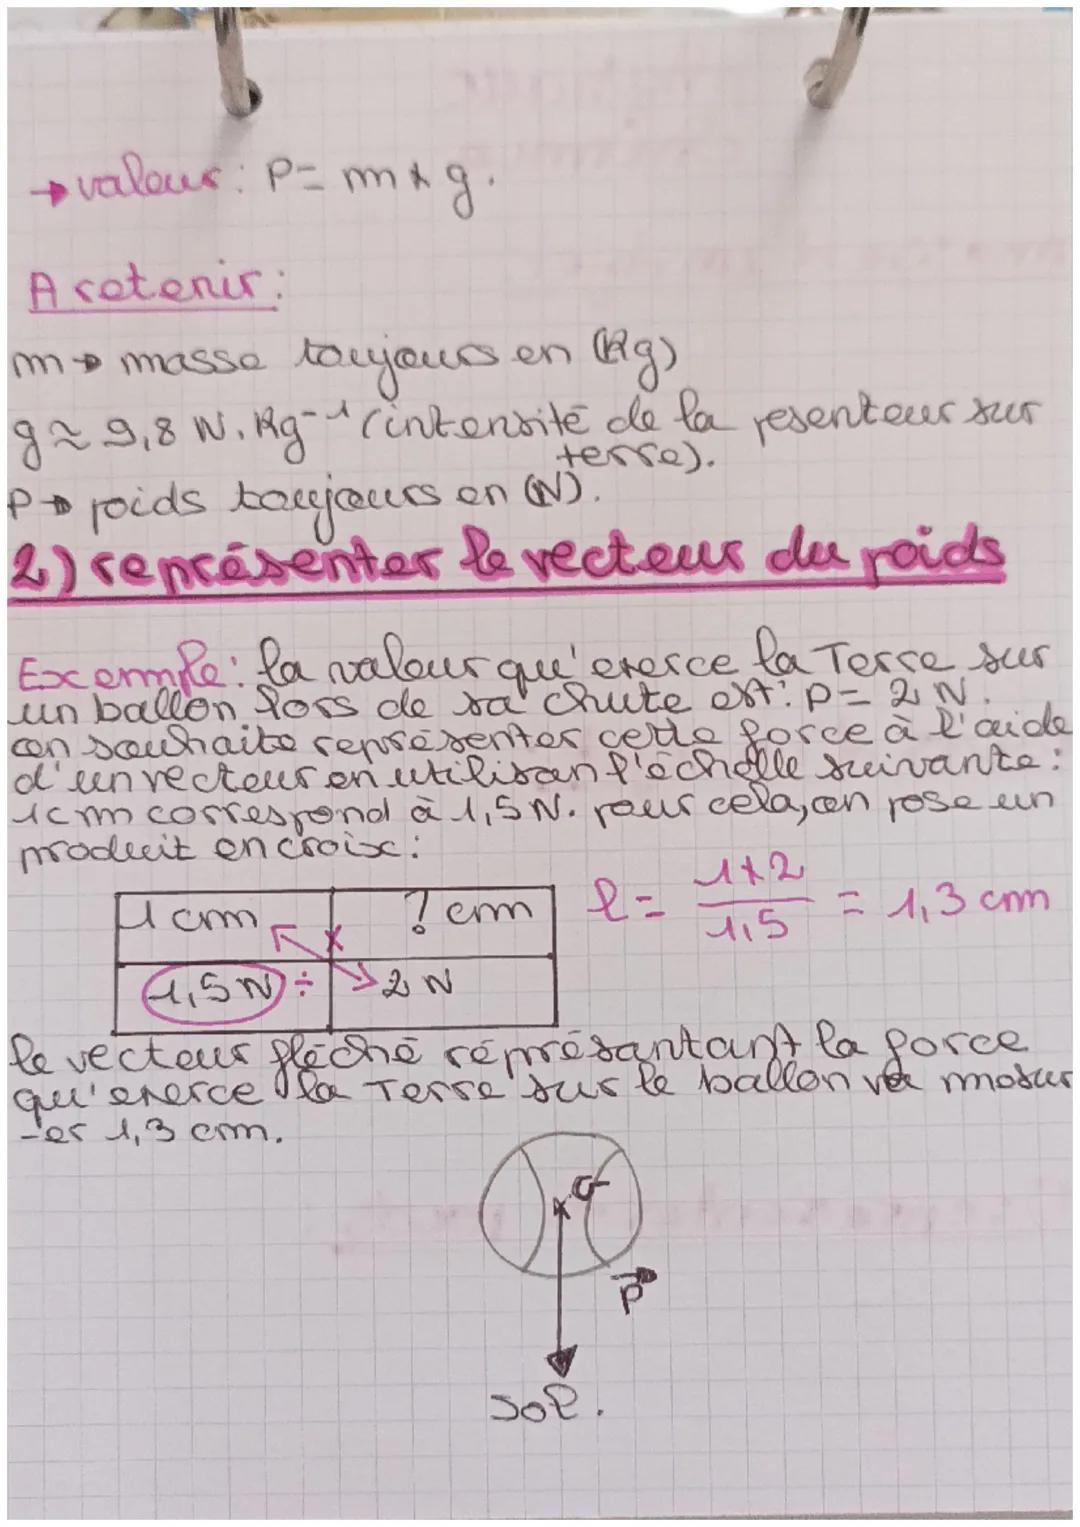 → valeur : P = m × g.
A retenir :
m → masse toujours en (Kg)
g ≈ 9,8 N.Kg⁻¹ (intensité de la pesenteur sur
terre).
P → poids toujours en (N).
2) représenter le vecteur du poids
Exemple : la valeur qu'exerce la Terre sur
un ballon lors de sa chute est : P = 2 N.
on souhaite représenter cette force à l'aide
d'un vecteur en utilisan l'échelle suivante :
1cm correspond à 1,5 N. pour cela, on pose un
produit en croix :
1 cm ? cm l = 1×2 / 1,5 = 1,3 cm
×
1,5 N ÷ 2 N
le vecteur fléché réprésantant la force
qu'exerce la Terre sur le ballon va mesur
-er 1,3 cm.
G
P→
sol.